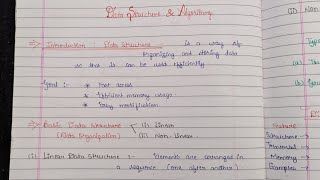 Data Structure & Algorithms
⇒ Introduction : Data Structure is a way of
organizing and storing data
so that it can be used efficiently
Goal :- * Fast access
* Efficient memory usage
* Easy modification
⇒ Basic Data Structure (i) Linear
(Data Organization) (ii) Non-Linear
(i) Linear Data Structure :- Elements are arranged in
a sequence (one after another)
(ii) Non
Type
(a)
(b)
Feature
Structure
Traversal
Memory
Examples